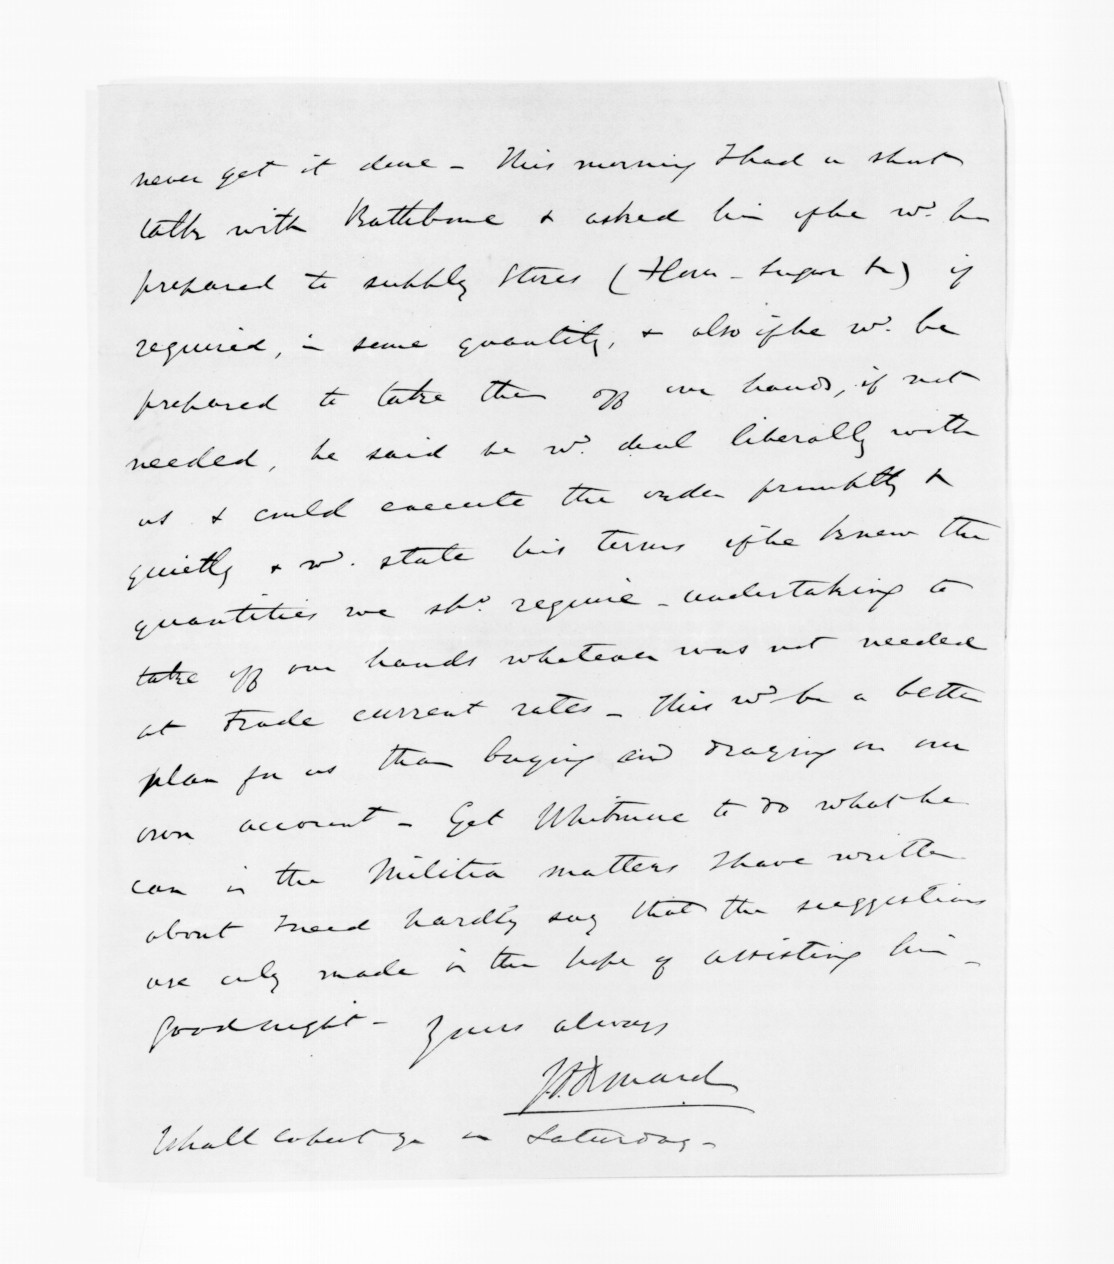 never get it done - This morning I had a short
talk with Rathbone & asked him if he wd. be
prepared to supply Stores (Flour - Sugar &c) if
required, in some quantity, & also if he wd. be
prepared to take them off our hands, if not
needed, he said he wd. deal liberally with
us & could execute the order promptly &
quietly & wd. state his terms if he knew the
quantities we shd. require - undertaking to
take off our hands whatever was not needed
at trade current rates - This wd be a better
plan for us than buying and on our
own account - Get Whitmore to do what he
can in the Militia matters I have written
about I need hardly say that the suggestions
are only made in the hope of assisting him -
Good night - Yours always
JD Ormond
I shall expect you on Saturday -